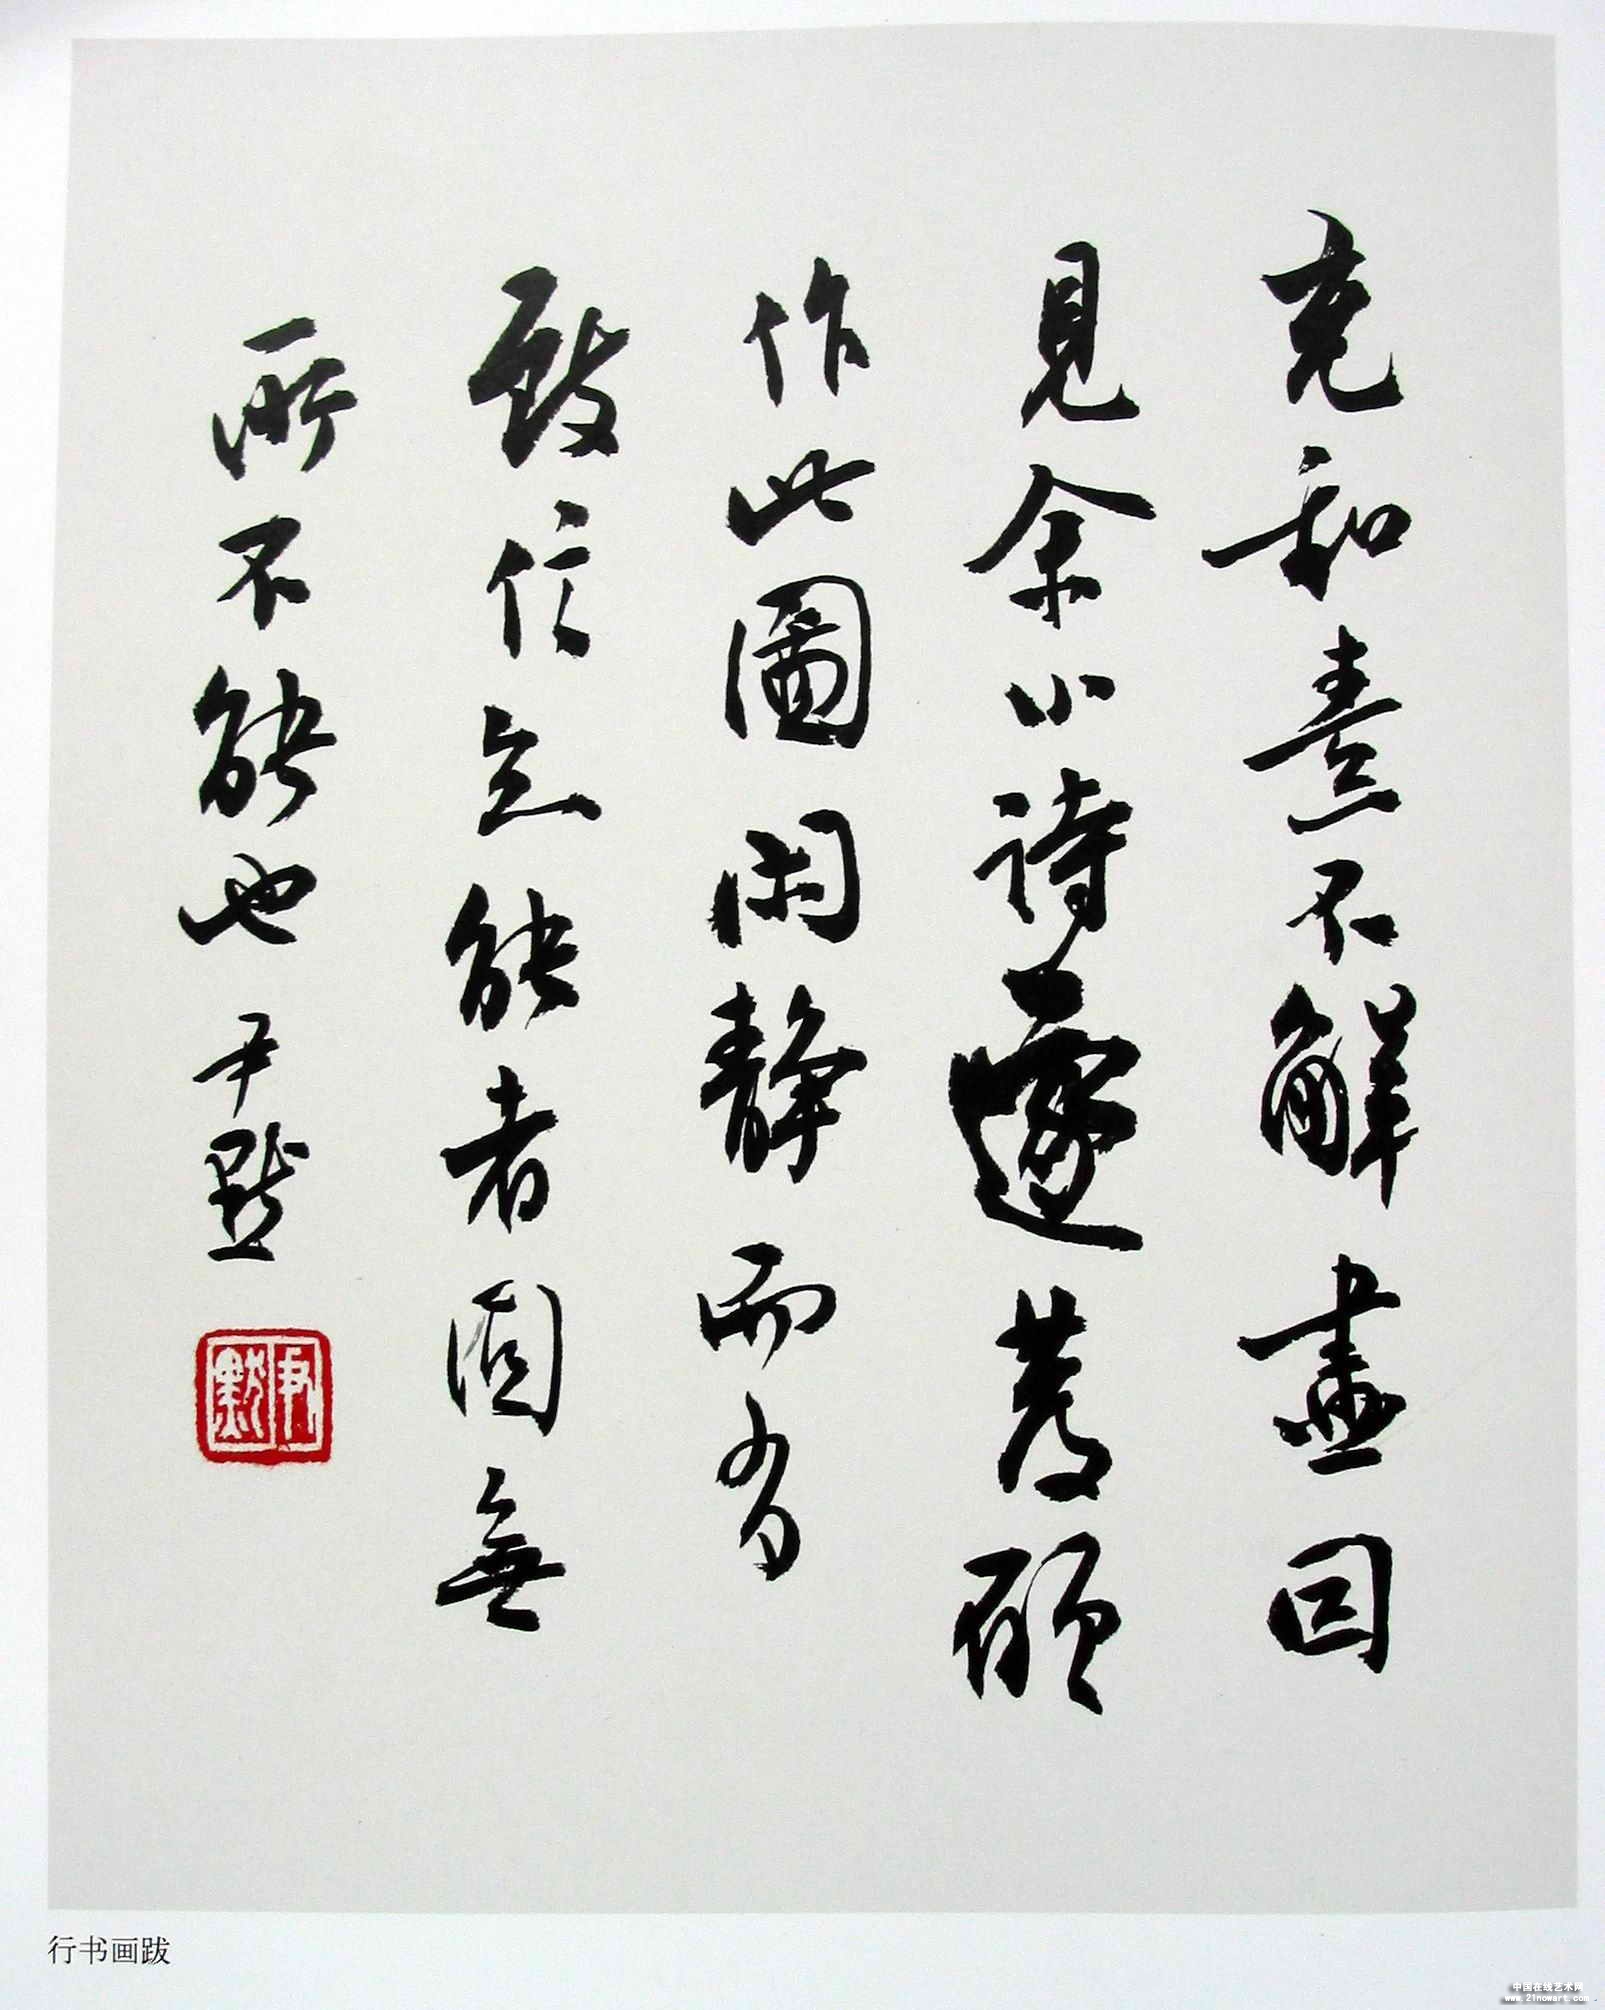 充和素不解畫因
見余小詩遂發願
作此圖閑静而有
致信知能者固無
所不能也 尹默
尹默
行书画跋
中国在线艺术网
www.21nowart.com